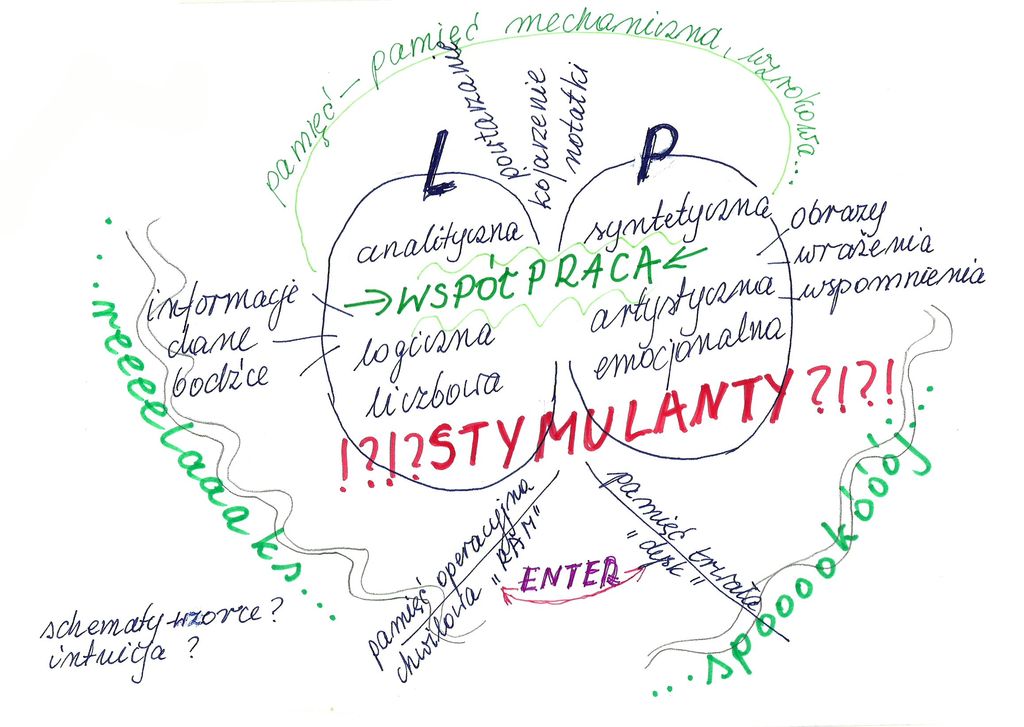 pamięć – pamięć mechaniczna, wzrokowa...
powtarzanie
kojarzenie
notatki
L
P
analityczna
syntetyczna
obrazy
wrażenia
wspomnienia
→ WSPÓŁPRACA ←
informacje
dane
bodźce
logiczna
liczbowa
artystyczna
emocjonalna
!?!? STYMULANTY ?!?!
...reeelaaaks...
...spooookóóój...
pamięć operacyjna
chwilowa "RAM"
ENTER
pamięć trwała
"dysk"
schematy-wzorce?
intuicja ?